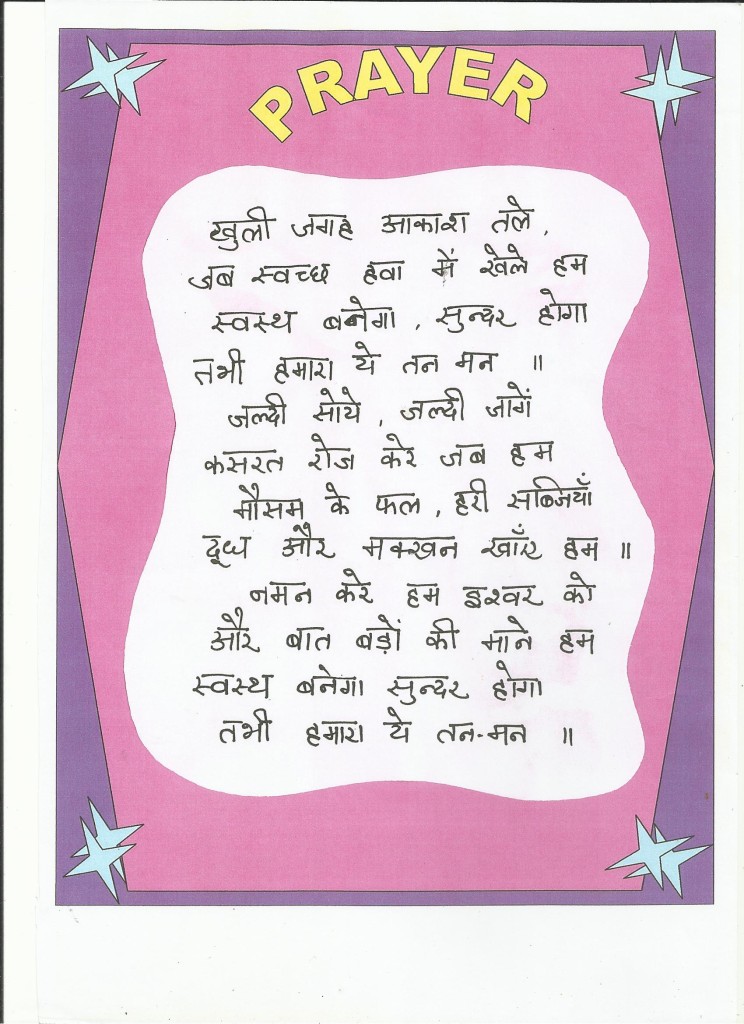 PRAYER
खुली जगह आकाश तले,
जब स्वच्छ हवा में खेले हम
स्वस्थ बनेगा, सुन्दर होगा
तभी हमारा ये तन मन ॥
जल्दी सोये, जल्दी जागें
कसरत रोज करे जब हम
मौसम के फल, हरी सब्जियाँ
दूध और मक्खन खाँए हम ॥
नमन करे हम इश्वर को
और बात बड़ों की माने हम
स्वस्थ बनेगा सुन्दर होगा
तभी हमारा ये तन-मन ॥